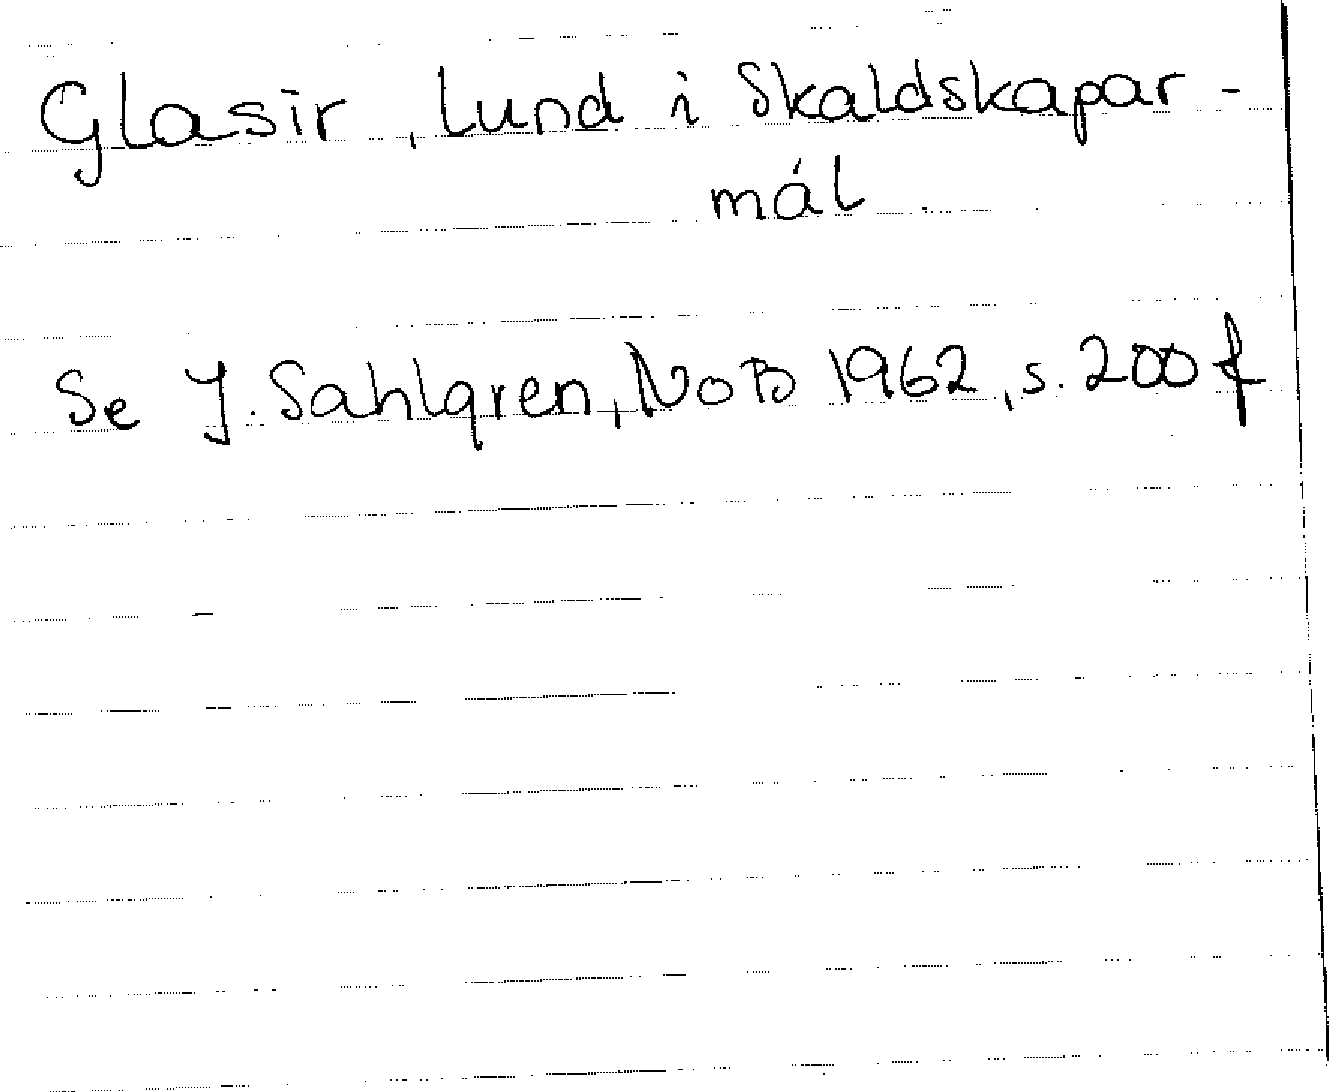 Glasir, lund i Skaldskapar-
mál
Se J. Sahlgren, NoB 1962, s. 200 f